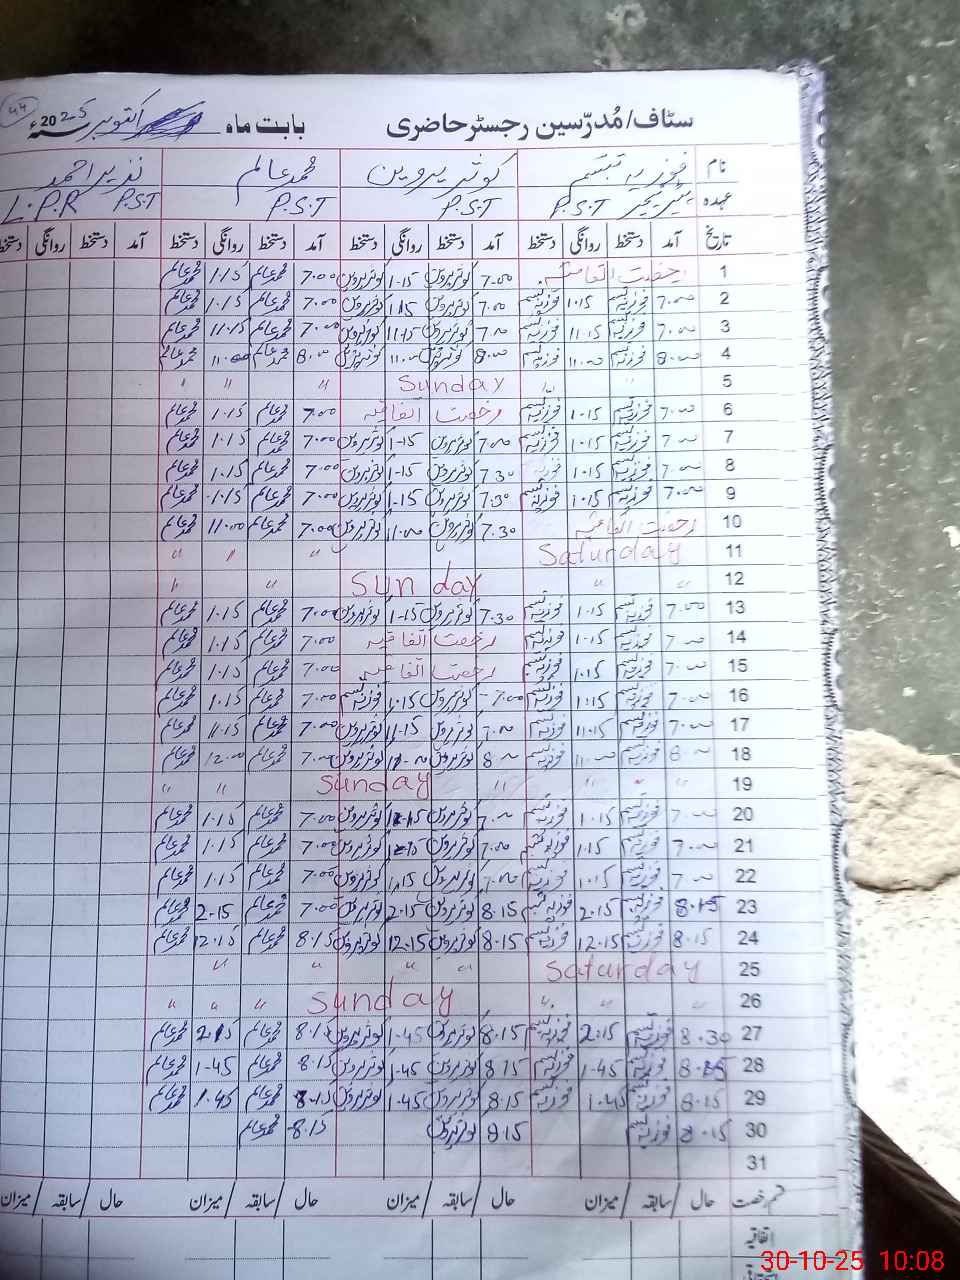 سٹاف/مُدرّسین رجسٹر حاضری بابت ماہ اکتوبر 2025ء
44
نام فوزیہ تبسم کوثر پروین محمد عالم نذیر احمد
عہدہ P.S.T P.S.T P.S.T P.S.T L.P.R
تاریخ آمد دستخط روانگی دستخط آمد دستخط روانگی دستخط آمد دستخط روانگی دستخط آمد دستخط روانگی دستخط
1 رخصت اتفاقیہ 7.00 کوثر پروین 1.15 کوثر پروین 7.00 محمد عالم 1.15 محمد عالم
2 7.00 فوزیہ تبسم 1.15 فوزیہ تبسم 7.00 کوثر پروین 1.15 کوثر پروین 7.00 محمد عالم 1.15 محمد عالم
3 7.00 فوزیہ تبسم 11.15 فوزیہ تبسم 7.00 کوثر پروین 11.15 کوثر پروین 7.00 محمد عالم 11.15 محمد عالم
4 8.00 فوزیہ تبسم 11.00 فوزیہ تبسم 8.00 کوثر پروین 11.00 کوثر پروین 8.00 محمد عالم 11.00 محمد عالم
5 " " Sunday " " "
6 7.00 فوزیہ تبسم 1.15 فوزیہ تبسم رخصت اتفاقیہ 7.00 محمد عالم 1.15 محمد عالم
7 7.00 فوزیہ تبسم 1.15 فوزیہ تبسم 7.00 کوثر پروین 1.15 کوثر پروین 7.00 محمد عالم 1.15 محمد عالم
8 7.00 فوزیہ تبسم 1.15 فوزیہ تبسم 7.30 کوثر پروین 1.15 کوثر پروین 7.00 محمد عالم 1.15 محمد عالم
9 7.00 فوزیہ تبسم 1.15 فوزیہ تبسم 7.30 کوثر پروین 1.15 کوثر پروین 7.00 محمد عالم 1.15 محمد عالم
10 رخصت اتفاقیہ 7.30 کوثر پروین 11.00 کوثر پروین 7.00 محمد عالم 11.00 محمد عالم
11 Saturday " " "
12 " " Sunday " "
13 7.00 فوزیہ تبسم 1.15 فوزیہ تبسم 7.30 کوثر پروین 1.15 کوثر پروین 7.00 محمد عالم 1.15 محمد عالم
14 7.00 فوزیہ تبسم 1.15 فوزیہ تبسم رخصت اتفاقیہ 7.00 محمد عالم 1.15 محمد عالم
15 7.00 فوزیہ تبسم 1.15 فوزیہ تبسم رخصت اتفاقیہ 7.00 محمد عالم 1.15 محمد عالم
16 7.00 فوزیہ تبسم 1.15 فوزیہ تبسم 7.00 کوثر پروین 1.15 فوزیہ تبسم 7.00 محمد عالم 1.15 محمد عالم
17 7.00 فوزیہ تبسم 11.15 فوزیہ تبسم 7.00 کوثر پروین 11.15 کوثر پروین 7.00 محمد عالم 11.15 محمد عالم
18 8.00 فوزیہ تبسم 11.00 فوزیہ تبسم 8.00 کوثر پروین کوثر پروین 7.00 محمد عالم 12.00 محمد عالم
19 " " " " Sunday " "
20 7.00 فوزیہ تبسم 1.15 فوزیہ تبسم 7.00 کوثر پروین 1.15 کوثر پروین 7.00 محمد عالم 1.15 محمد عالم
21 7.00 فوزیہ تبسم 1.15 فوزیہ تبسم 7.00 کوثر پروین 1.15 کوثر پروین 7.00 محمد عالم 1.15 محمد عالم
22 7.00 فوزیہ تبسم 1.15 فوزیہ تبسم 7.00 کوثر پروین 1.15 کوثر پروین 7.00 محمد عالم 1.15 محمد عالم
23 8.15 فوزیہ تبسم 2.15 فوزیہ تبسم 8.15 کوثر پروین 2.15 کوثر پروین 7.00 محمد عالم 2.15 محمد عالم
24 8.15 فوزیہ تبسم 12.15 فوزیہ تبسم 8.15 کوثر پروین 12.15 کوثر پروین 8.15 محمد عالم 12.15 محمد عالم
25 Saturday " " " "
26 " " " Sunday " " "
27 8.30 فوزیہ تبسم 2.15 فوزیہ تبسم 8.15 کوثر پروین 1.45 کوثر پروین 8.15 محمد عالم 2.15 محمد عالم
28 فوزیہ تبسم 1.45 فوزیہ تبسم 8.15 کوثر پروین 1.45 کوثر پروین 8.15 محمد عالم 1.45 محمد عالم
29 8.15 فوزیہ تبسم 1.45 فوزیہ تبسم 8.15 کوثر پروین 1.45 کوثر پروین 8.15 محمد عالم 1.45 محمد عالم
30 8.15 فوزیہ تبسم 8.15 کوثر پروین 8.15 محمد عالم
31
قسم رخصت حال/سابقہ/میزان حال/سابقہ/میزان حال/سابقہ/میزان حال/سابقہ/میزان
اتفاقیہ
30-10-25 10:08